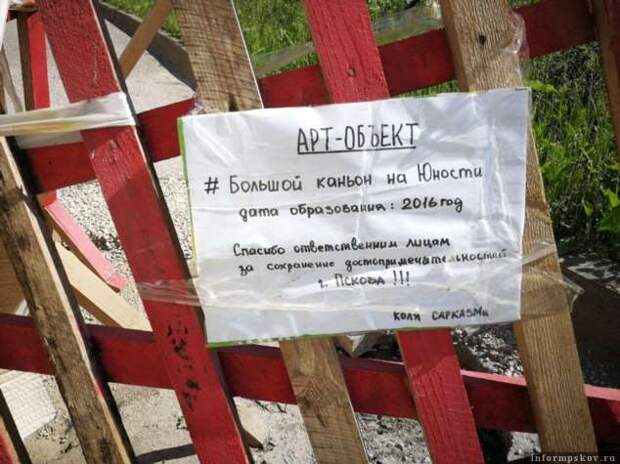 АРТ-ОБЪЕКТ
# Большой каньон на Юности
дата образования: 2016 год
Спасибо ответственным лицам
за сохранение достопримечательностей
г. Пскова !!!
Коля САРКАЗМи
Informpskov.ru